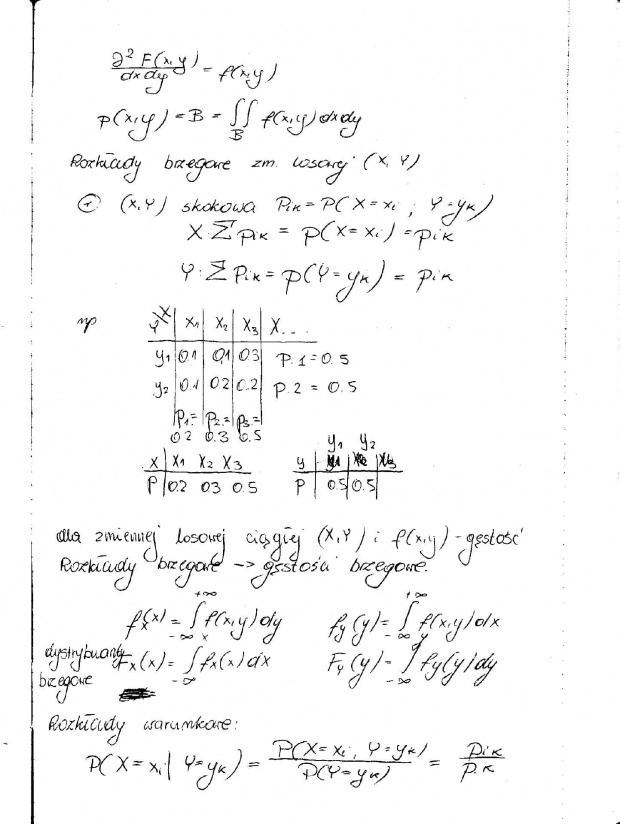 ∂² F(x,y) / dx dy = f(x,y)
P(x,y) = B = ∬_B f(x,y) dx dy
Rozkłady brzegowe zm. losowej (X, Y)
(X,Y) skokowa Pik = P(X = xi ; Y = yk)
X: Σ pik = p(X = xi) = pik
Y: Σ Pik = p(Y = yk) = pik
np
Y\X | X1 | X2 | X3 | X...
y1 | 0.1 | 0.1 | 0.3 | P.1 = 0.5
y2 | 0.1 | 0.2 | 0.2 | P.2 = 0.5
P1.= P2.= P3.=
0.2 0.3 0.5
y1 y2
X | X1 X2 X3 y
P | 0.2 0.3 0.5 P | 0.5 | 0.5
dla zmiennej losowej ciągłej (X,Y) i f(x,y) - gęstość
Rozkłady brzegowe -> gęstości brzegowe.
fx(x) = ∫_{-∞}^{+∞} f(x,y) dy fy(y) = ∫_{-∞}^{+∞} f(x,y) dx
dystrybuanty Fx(x) = ∫_{-∞}^{x} fx(x) dx Fy(y) = ∫_{-∞}^{y} fy(y) dy
brzegowe
Rozkłady warunkowe:
P(X = xi | Y = yk) = P(X = xi, Y = yk) / P(Y = yk) = pik / p.k